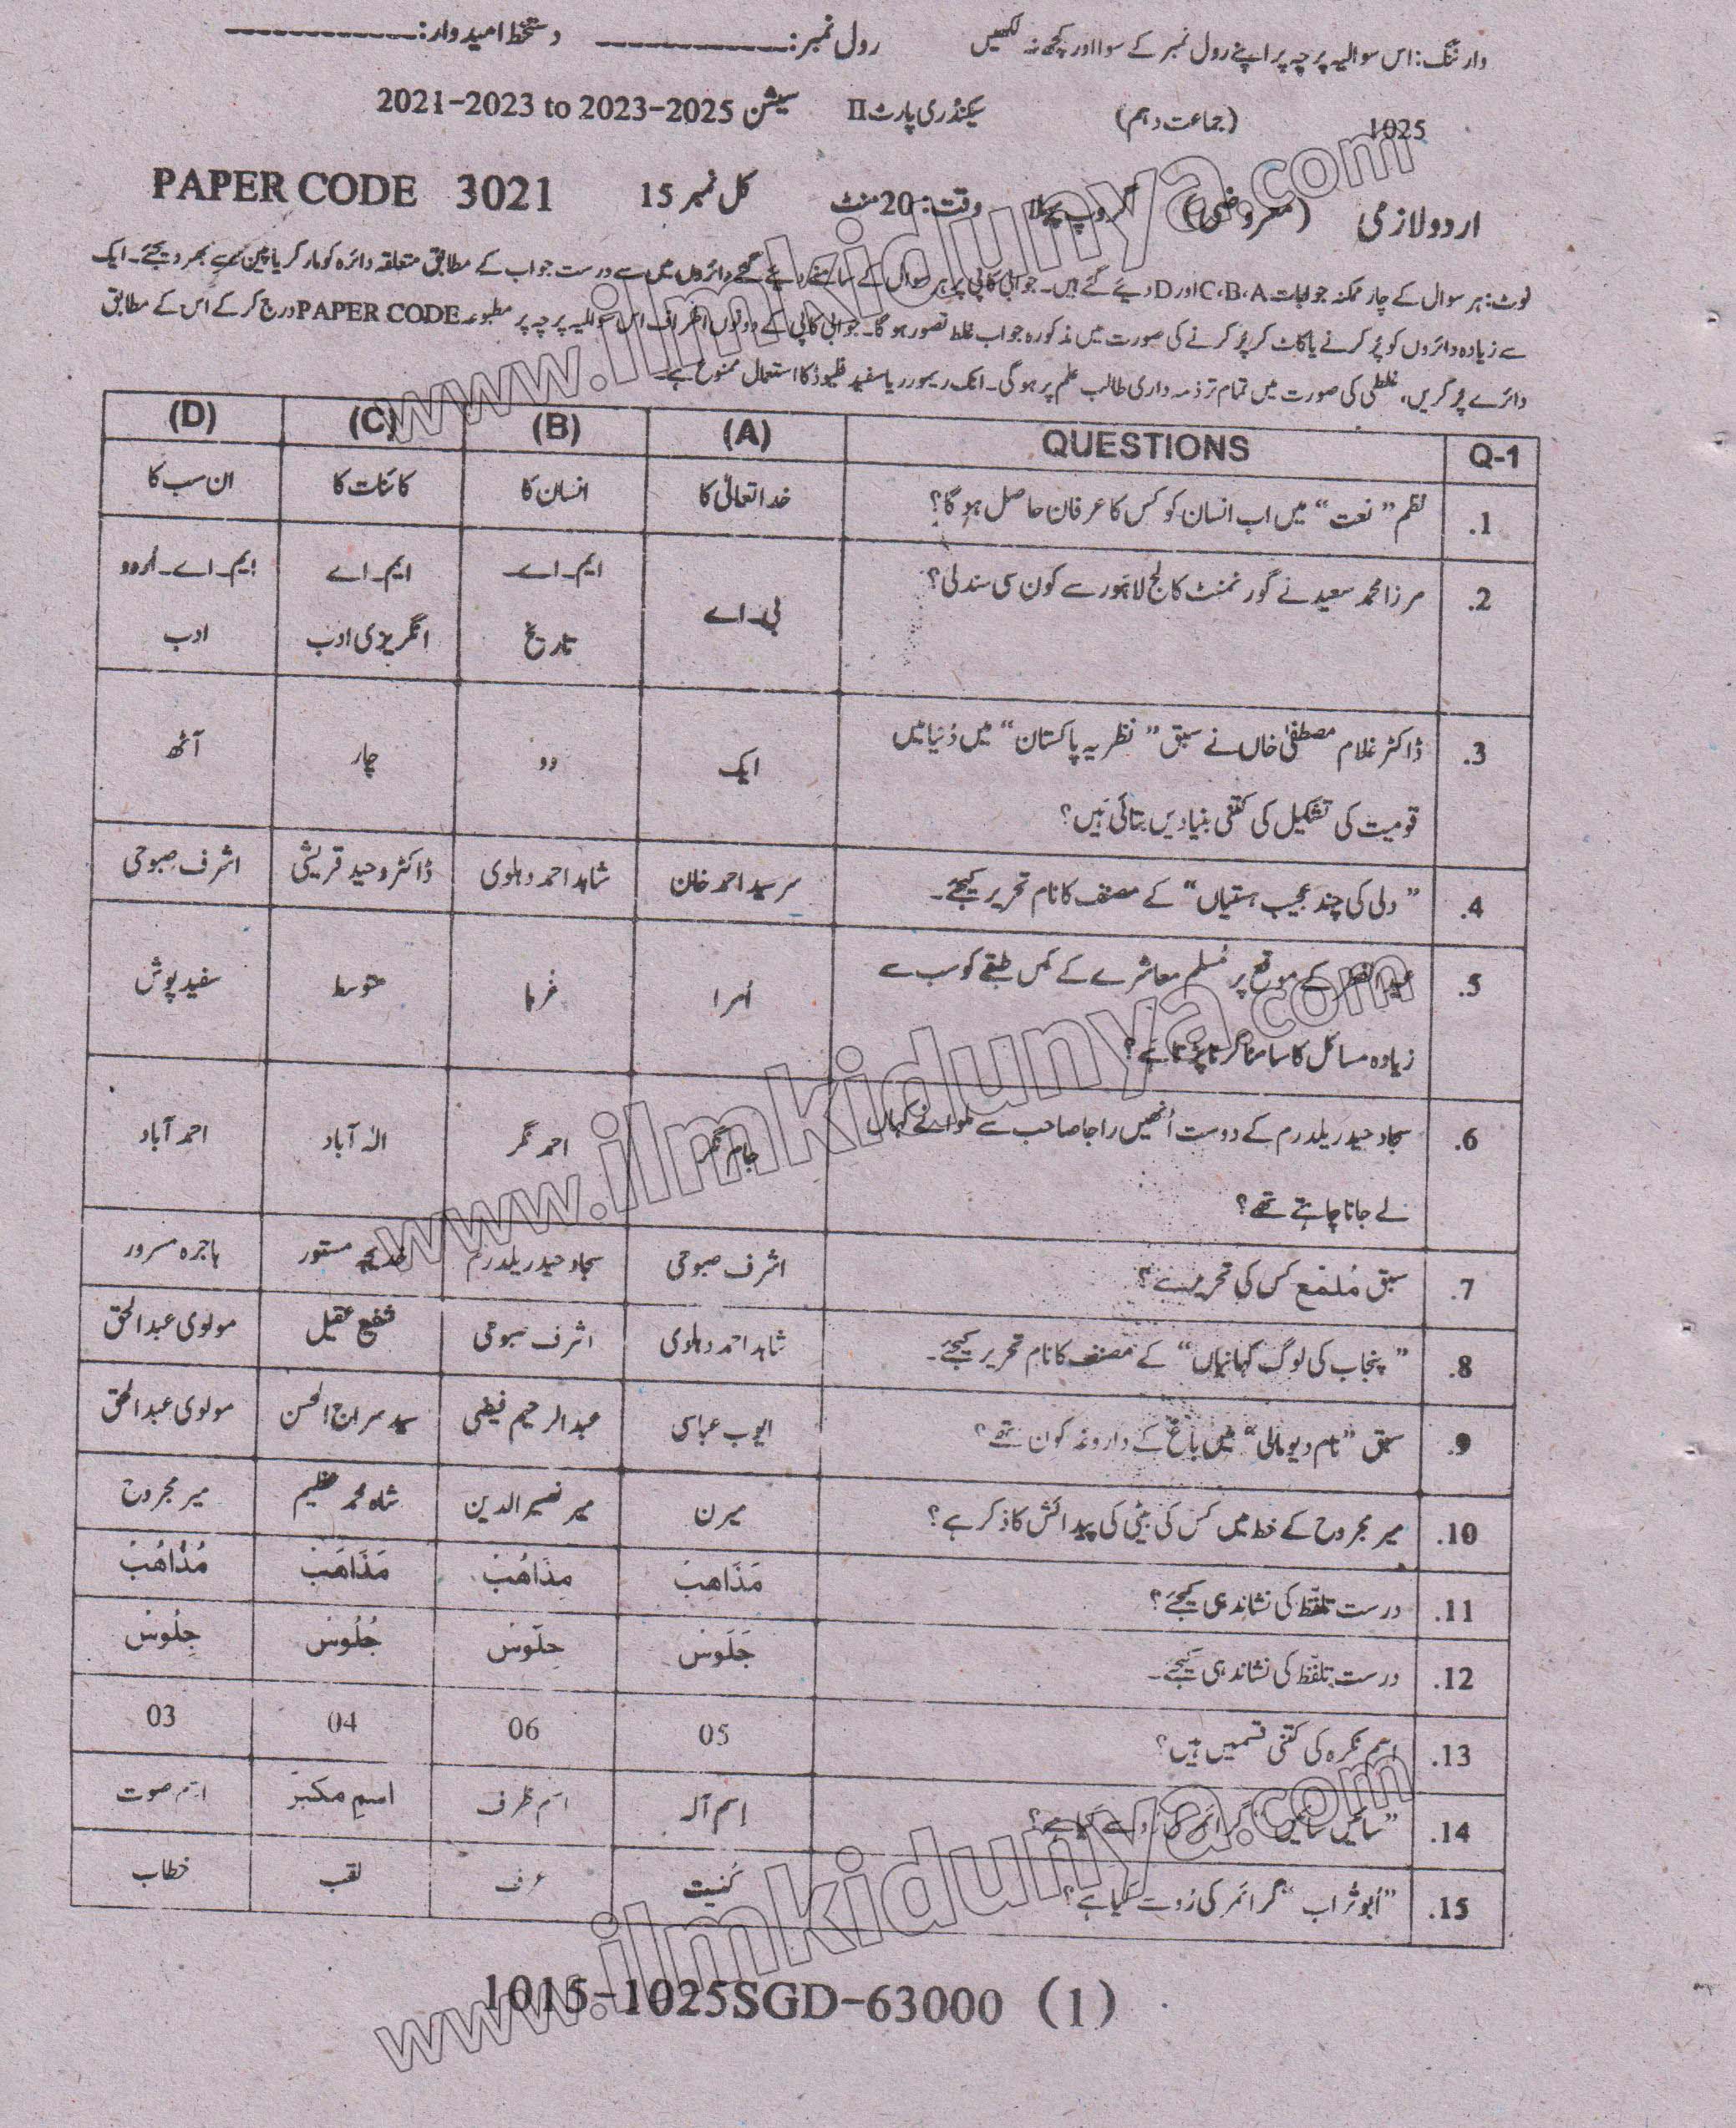 وارننگ: اس سوالیہ پرچہ پر اپنے رول نمبر کے سوا اور کچھ نہ لکھیں رول نمبر: ____________ دستخط امیدوار: ____________
1025 (جماعت دہم) سیکنڈری پارٹ II سیشن 2021-2023 to 2023-2025
اردو لازمی (معروضی) گروپ II وقت: 20 منٹ کل نمبر 15 PAPER CODE 3021
نوٹ: ہر سوال کے چار ممکنہ جوابات C،B،A اور D دیئے گئے ہیں۔ جوابی کاپی پر ہر سوال کے سامنے دیئے گئے دائروں میں سے درست جواب کے مطابق متعلقہ دائرہ کو مارکر یا پین سے بھر دیجئے۔ ایک
سے زیادہ دائروں کو پُر کرنے یا کاٹ کر پُر کرنے کی صورت میں مذکورہ جواب غلط تصور ہو گا۔ جوابی کاپی کے دونوں اطراف اس سوالیہ پرچہ پر مطبوعہ PAPER CODE درج کر کے اس کے مطابق
دائرے پُر کریں، غلطی کی صورت میں تمام تر ذمہ داری طالب علم پر ہو گی۔ انک ریموور یا سفید فلیوڈ کا استعمال ممنوع ہے۔
Q-1 QUESTIONS (A) (B) (C) (D)
1. نظم ”نعت“ میں اب انسان کو کس کا عرفان حاصل ہو گا؟ خدا تعالٰی کا انسان کا کائنات کا ان سب کا
2. مرزا محمد سعید نے گورنمنٹ کالج لاہور سے کون سی سند لی؟ بی۔اے ایم۔اے۔ تاریخ ایم۔اے انگریزی ادب ایم۔اے۔اردو ادب
3. ڈاکٹر غلام مصطفیٰ خاں نے سبق ”نظریہ پاکستان“ میں دُنیا میں
قومیت کی تشکیل کی کتنی بنیادیں بتائی ہیں؟ ایک دو چار آٹھ
4. ”دلی کی چند عجیب ہستیاں“ کے مصنف کا نام تحریر کیجئے۔ سر سید احمد خان شاہد احمد دہلوی ڈاکٹر وحید قریشی اشرف صبوحی
5. عید الفطر کے موقع پر مُسلم معاشرے کے کس طبقے کو سب سے
زیادہ مسائل کا سامنا کرنا پڑتا ہے؟ اُمرا غربا متوسط سفید پوش
6. سجاد حیدر یلدرم کے دوست اُنھیں راجا صاحب سے ملوانے کہاں
لے جانا چاہتے تھے؟ جام نگر احمد نگر الہ آباد احمد آباد
7. سبق مُلمّع کس کی تحریر ہے؟ اشرف صبوحی سجاد حیدر یلدرم خدیجہ مستور ہاجرہ مسرور
8. ”پنجاب کی لوگ کہانیاں“ کے مصنف کا نام تحریر کیجئے۔ شاہد احمد دہلوی اشرف صبوحی شفیع عقیل مولوی عبدالحق
9. سبق ”نام دیو مالی“ میں باغ کے داروغہ کون تھے؟ ایوب عباسی عبدالرحیم فیضی سید سراج الحسن مولوی عبدالحق
10. میر مجروح کے خط میں کس کی بیٹی کی پیدائش کا ذکر ہے؟ میرن میر نصیر الدین شاہ محمد عظیم میر مجروح
11. درست تلفّظ کی نشاندہی کیجئے؟ مَذَاهِبْ مِذَاهُبْ مَذَاهَبْ مُذَاهُبْ
12. درست تلفّظ کی نشاندہی کیجئے۔ جَلَوسْ جِلَوسْ جُلُوسْ جِلُوسْ
13. اسم نکرہ کی کتنی قسمیں ہیں؟ 05 06 04 03
14. ”سائیں سائیں“ گرائمر کی رُو سے کیا ہے؟ اِسم آلہ اسم ظرف اسمِ مکبر اسم صوت
15. ”اُبوتُراب“ گرائمر کی رُو سے کیا ہے؟ کُنیت عرف لقب خطاب
1015-1025SGD-63000 (1)
www.ilmkidunya.com
www.ilmkidunya.com
www.ilmkidunya.com